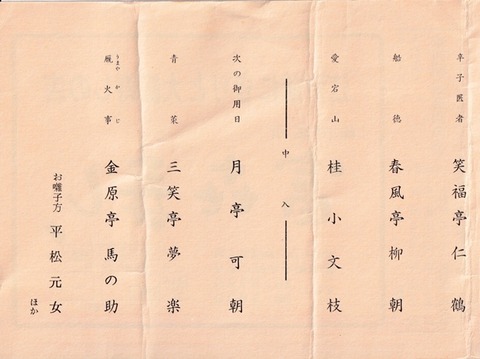 卆子医者　笑福亭仁鶴
船徳　春風亭柳朝
愛宕山　桂小文枝
中入
次の御用日　月亭可朝
青菜　三笑亭夢楽
厩火事　うまやかじ　金原亭馬の助
お囃子方　平松元女
ほか